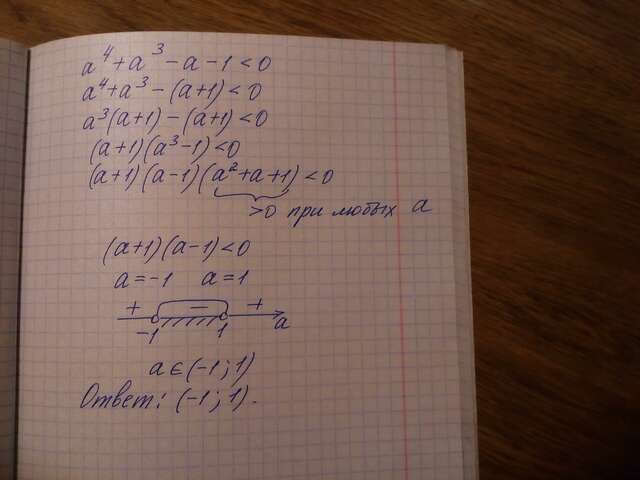 a⁴+a³-a-1<0
a⁴+a³-(a+1)<0
a³(a+1)-(a+1)<0
(a+1)(a³-1)<0
(a+1)(a-1)(a²+a+1)<0
>0 при любых a
(a+1)(a-1)<0
a=-1 a=1
+ - +
-1 1 a
a∈(-1;1)
Ответ: (-1;1).